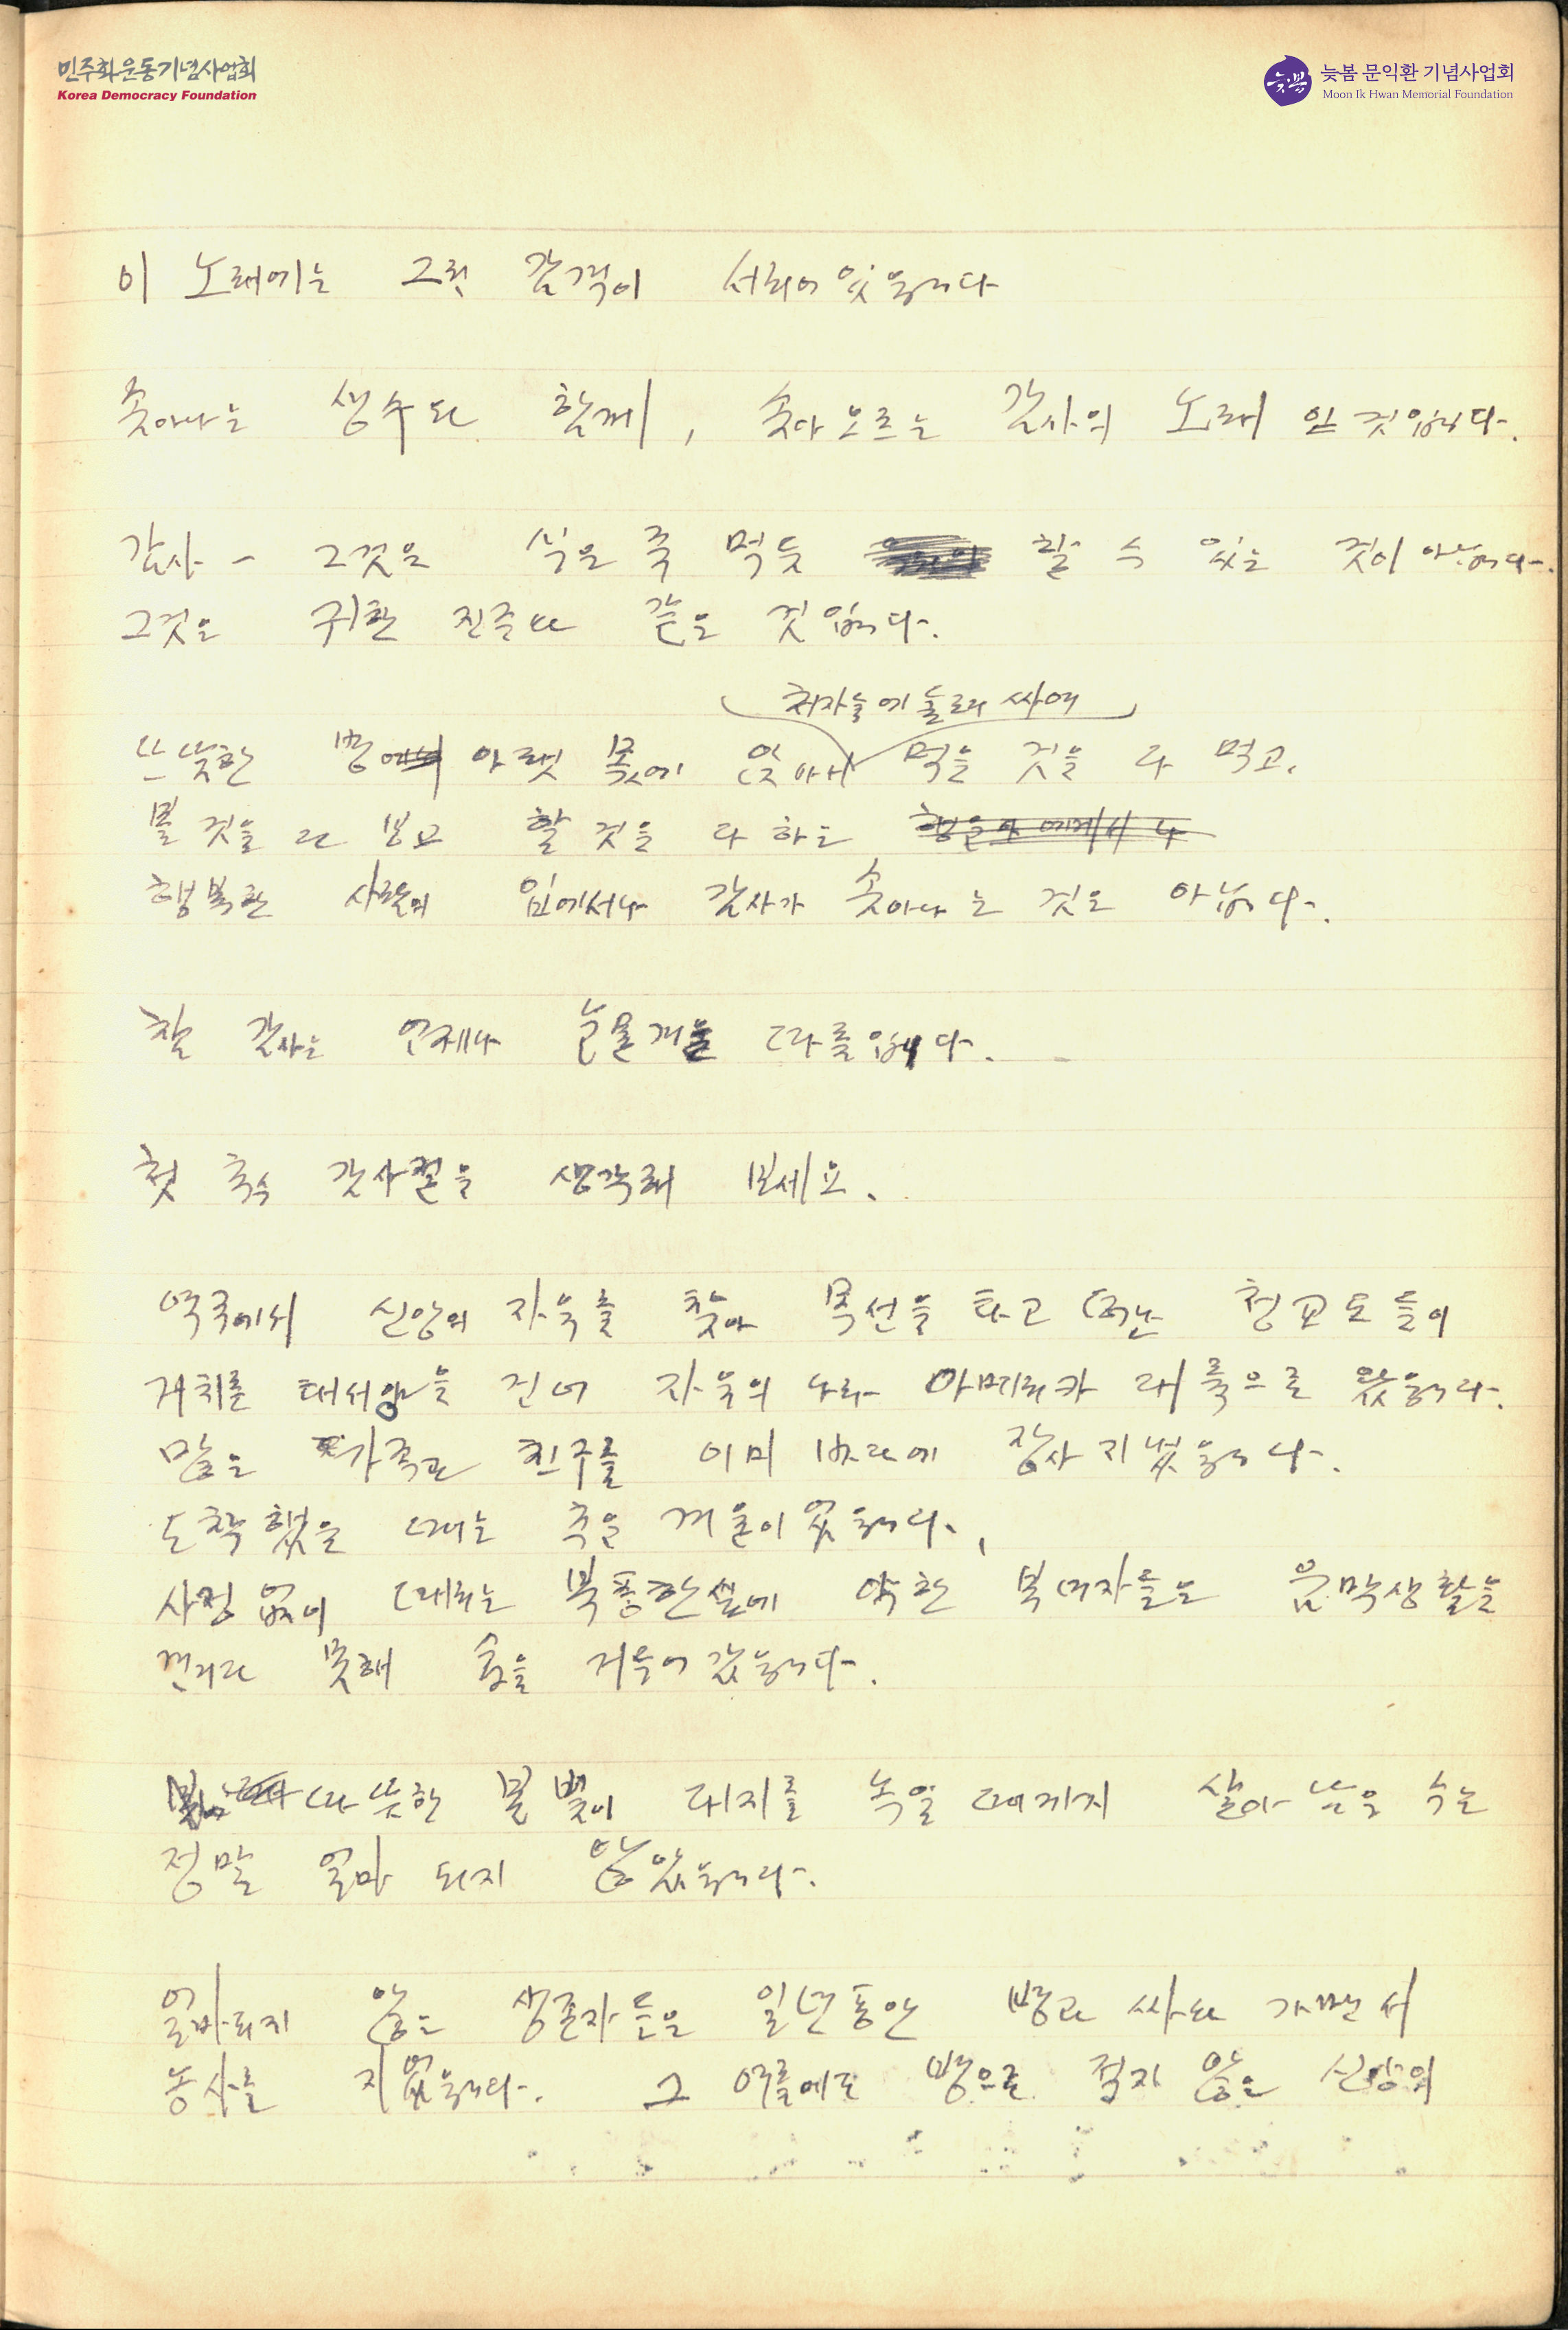 민주화운동기념사업회
Korea Democracy Foundation
늦봄 문익환 기념사업회
Moon Ik Hwan Memorial Foundation
이 노래에는 그런 감격이 서리어 있읍니다
솟아나는 생수와 함께, 솟아 오르는 감사의 노래 인 것입니다.
감사 - 그것은 식은 죽 먹듯 할 수 있는 것이 아닙니다.
그것은 귀한 진주와 같은 것입니다.
처자들에 둘러 싸여
뜨뜻한 방 아랫 목에 앉아서 먹을 것을 다 먹고,
볼 것을 다 보고 할 것을 다 하는
행복한 사람의 입에서나 감사가 솟아나는 것은 아닙니다.
참 감사는 언제나 눈물겨울 따름입니다.
첫 추수 감사절을 생각해 보세요.
영국에서 신앙의 자유를 찾아 목선을 타고 떠난 청교도들이
거치른 태서양을 건너 자유의 나라 아메리카 대륙으로 왔읍니다.
많은 가족과 친구를 이미 바다에 장사 지냈읍니다.
도착했을 때는 추운 겨울이었읍니다.,
사정없이 때리는 북풍한설에 약한 부녀자들은 움막생활을
견디다 못해 숨을 거두어 갔읍니다.
따뜻한 봄 볕이 대지를 녹일 때까지 살아 남은 수는
정말 얼마 되지 않았읍니다.
얼마되지 않는 생존자들은 일년동안 병과 싸와 가면서
농사를 지었읍니다. 그 여름에도 병으로 적지 않은 신앙의